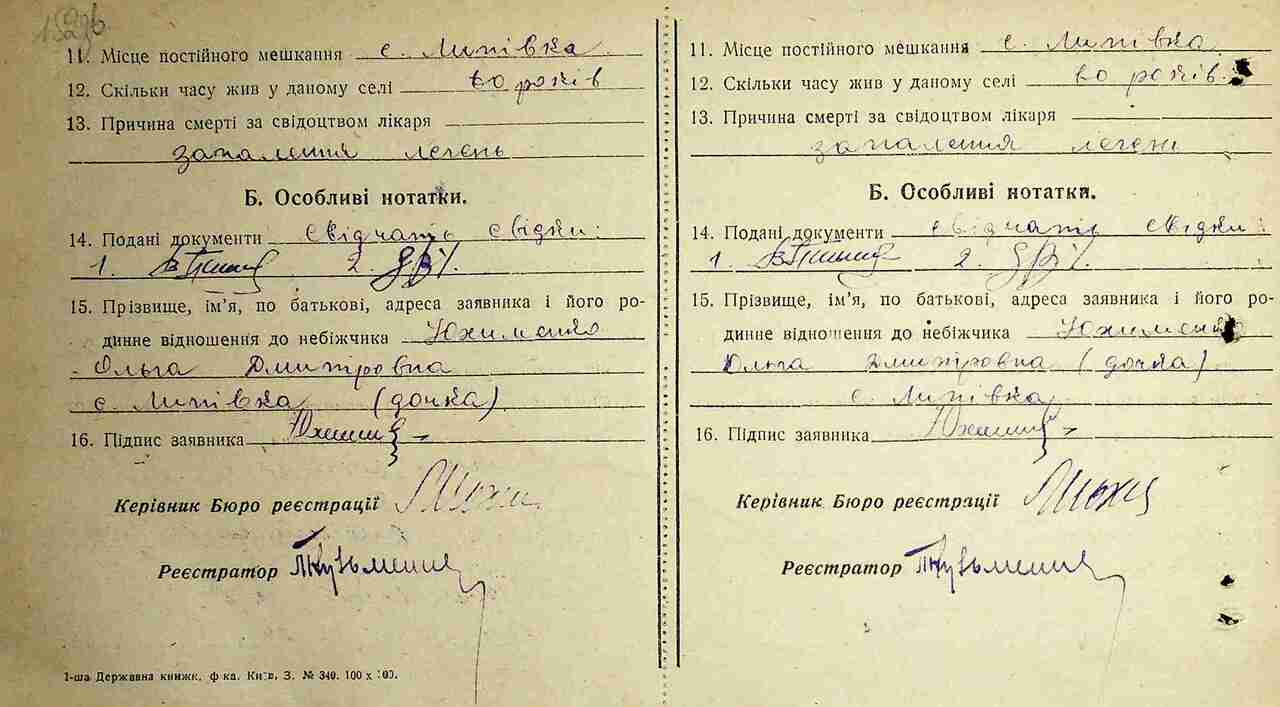 11. Місце постійного мешкання с. Липівка
12. Скільки часу жив у даному селі 60 років
13. Причина смерті за свідоцтвом лікаря
запалення легень
Б. Особливі нотатки.
14. Подані документи свідчать свідки:
1. 2.
15. Прізвище, ім'я, по батькові, адреса заявника і його ро-
динне відношення до небіжчика Юхименко
Ольга Дмитровна
с. Липівка (дочка)
16. Підпис заявника
Керівник Бюро реєстрації
Реєстратор
1-ша Державна книжк. ф-ка. Київ, З. № 340. 100 х 100.
11. Місце постійного мешкання с. Липівка
12. Скільки часу жив у даному селі 60 років
13. Причина смерті за свідоцтвом лікаря
запалення легень
Б. Особливі нотатки.
14. Подані документи свідчать свідки:
1. 2.
15. Прізвище, ім'я, по батькові, адреса заявника і його ро-
динне відношення до небіжчика Юхименко
Ольга Дмитровна (дочка)
с. Липівка
16. Підпис заявника
Керівник Бюро реєстрації
Реєстратор